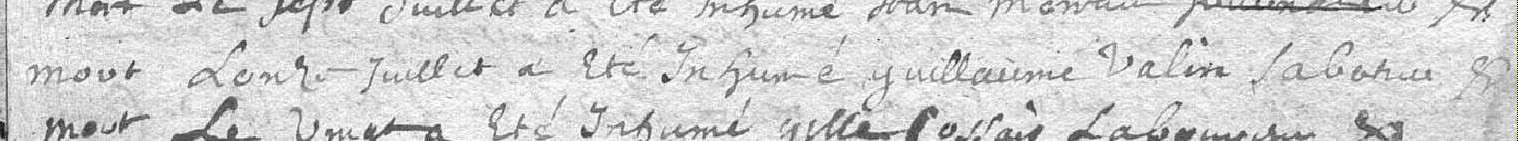 mort Le sept Juillet a Eté Inhumé
mort Lonze Juillet a Eté Inhumé guillaume Valin Laboureur &
mort Le Vingt a Eté Inhumé gille Cossais Laboureur &